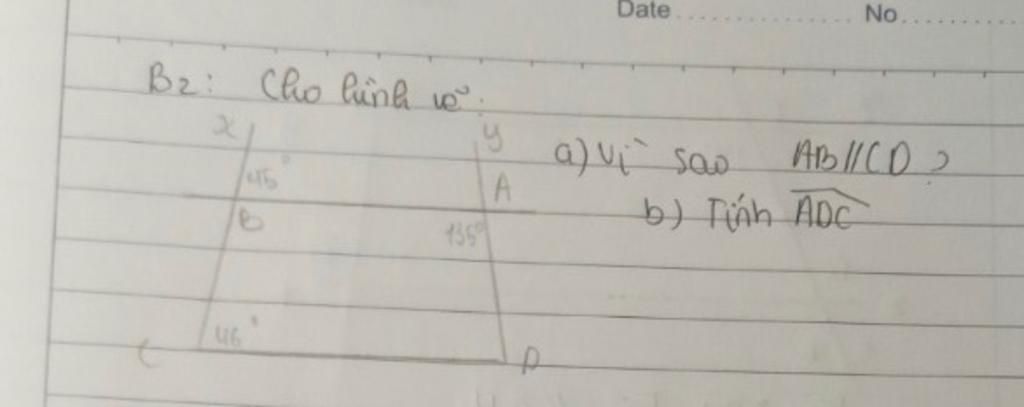 Date No
B2: Cho hình vẽ:
x y
a) Vì sao AB//CD?
45° A
B
b) Tính ADC
135°
46°
C D